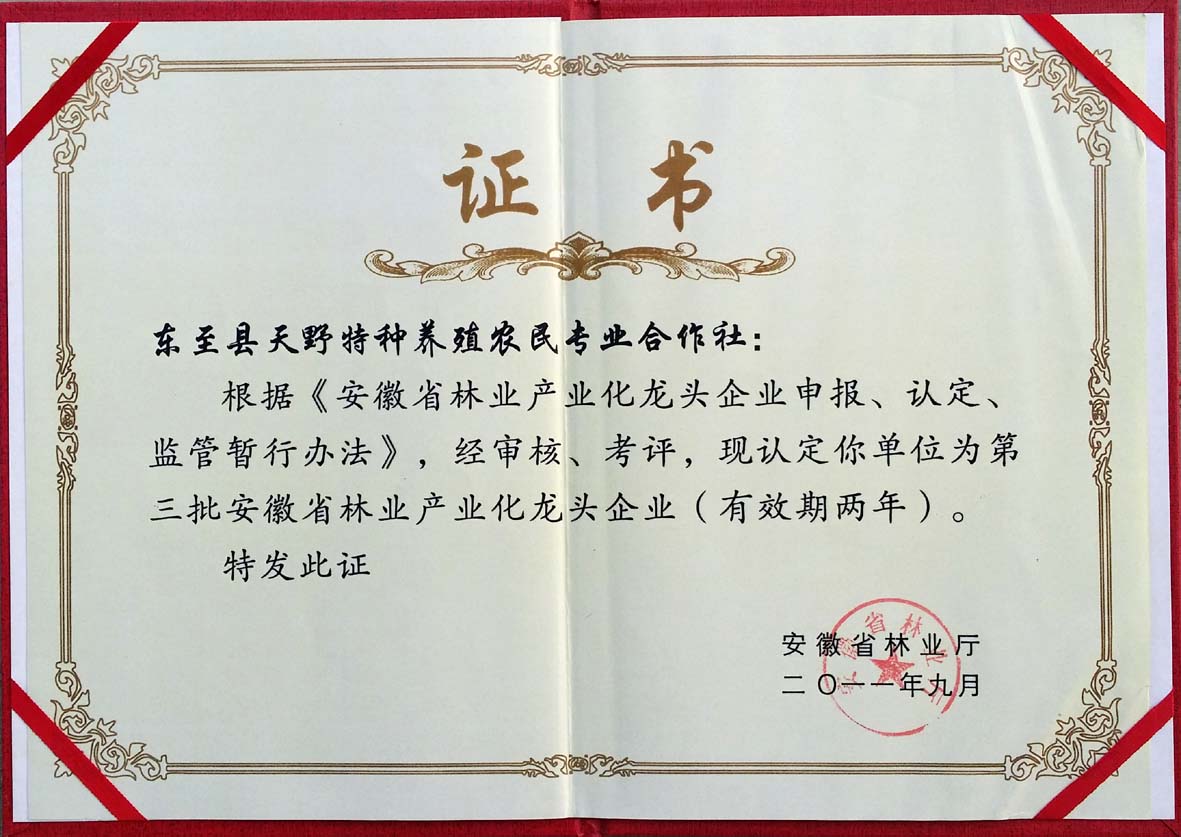 证书
东至县天野特种养殖农民专业合作社：
根据《安徽省林业产业化龙头企业申报、认定、
监管暂行办法》，经审核、考评，现认定你单位为第
三批安徽省林业产业化龙头企业（有效期两年）。
特发此证
安徽省林业厅
二〇一一年九月
安徽省林业厅